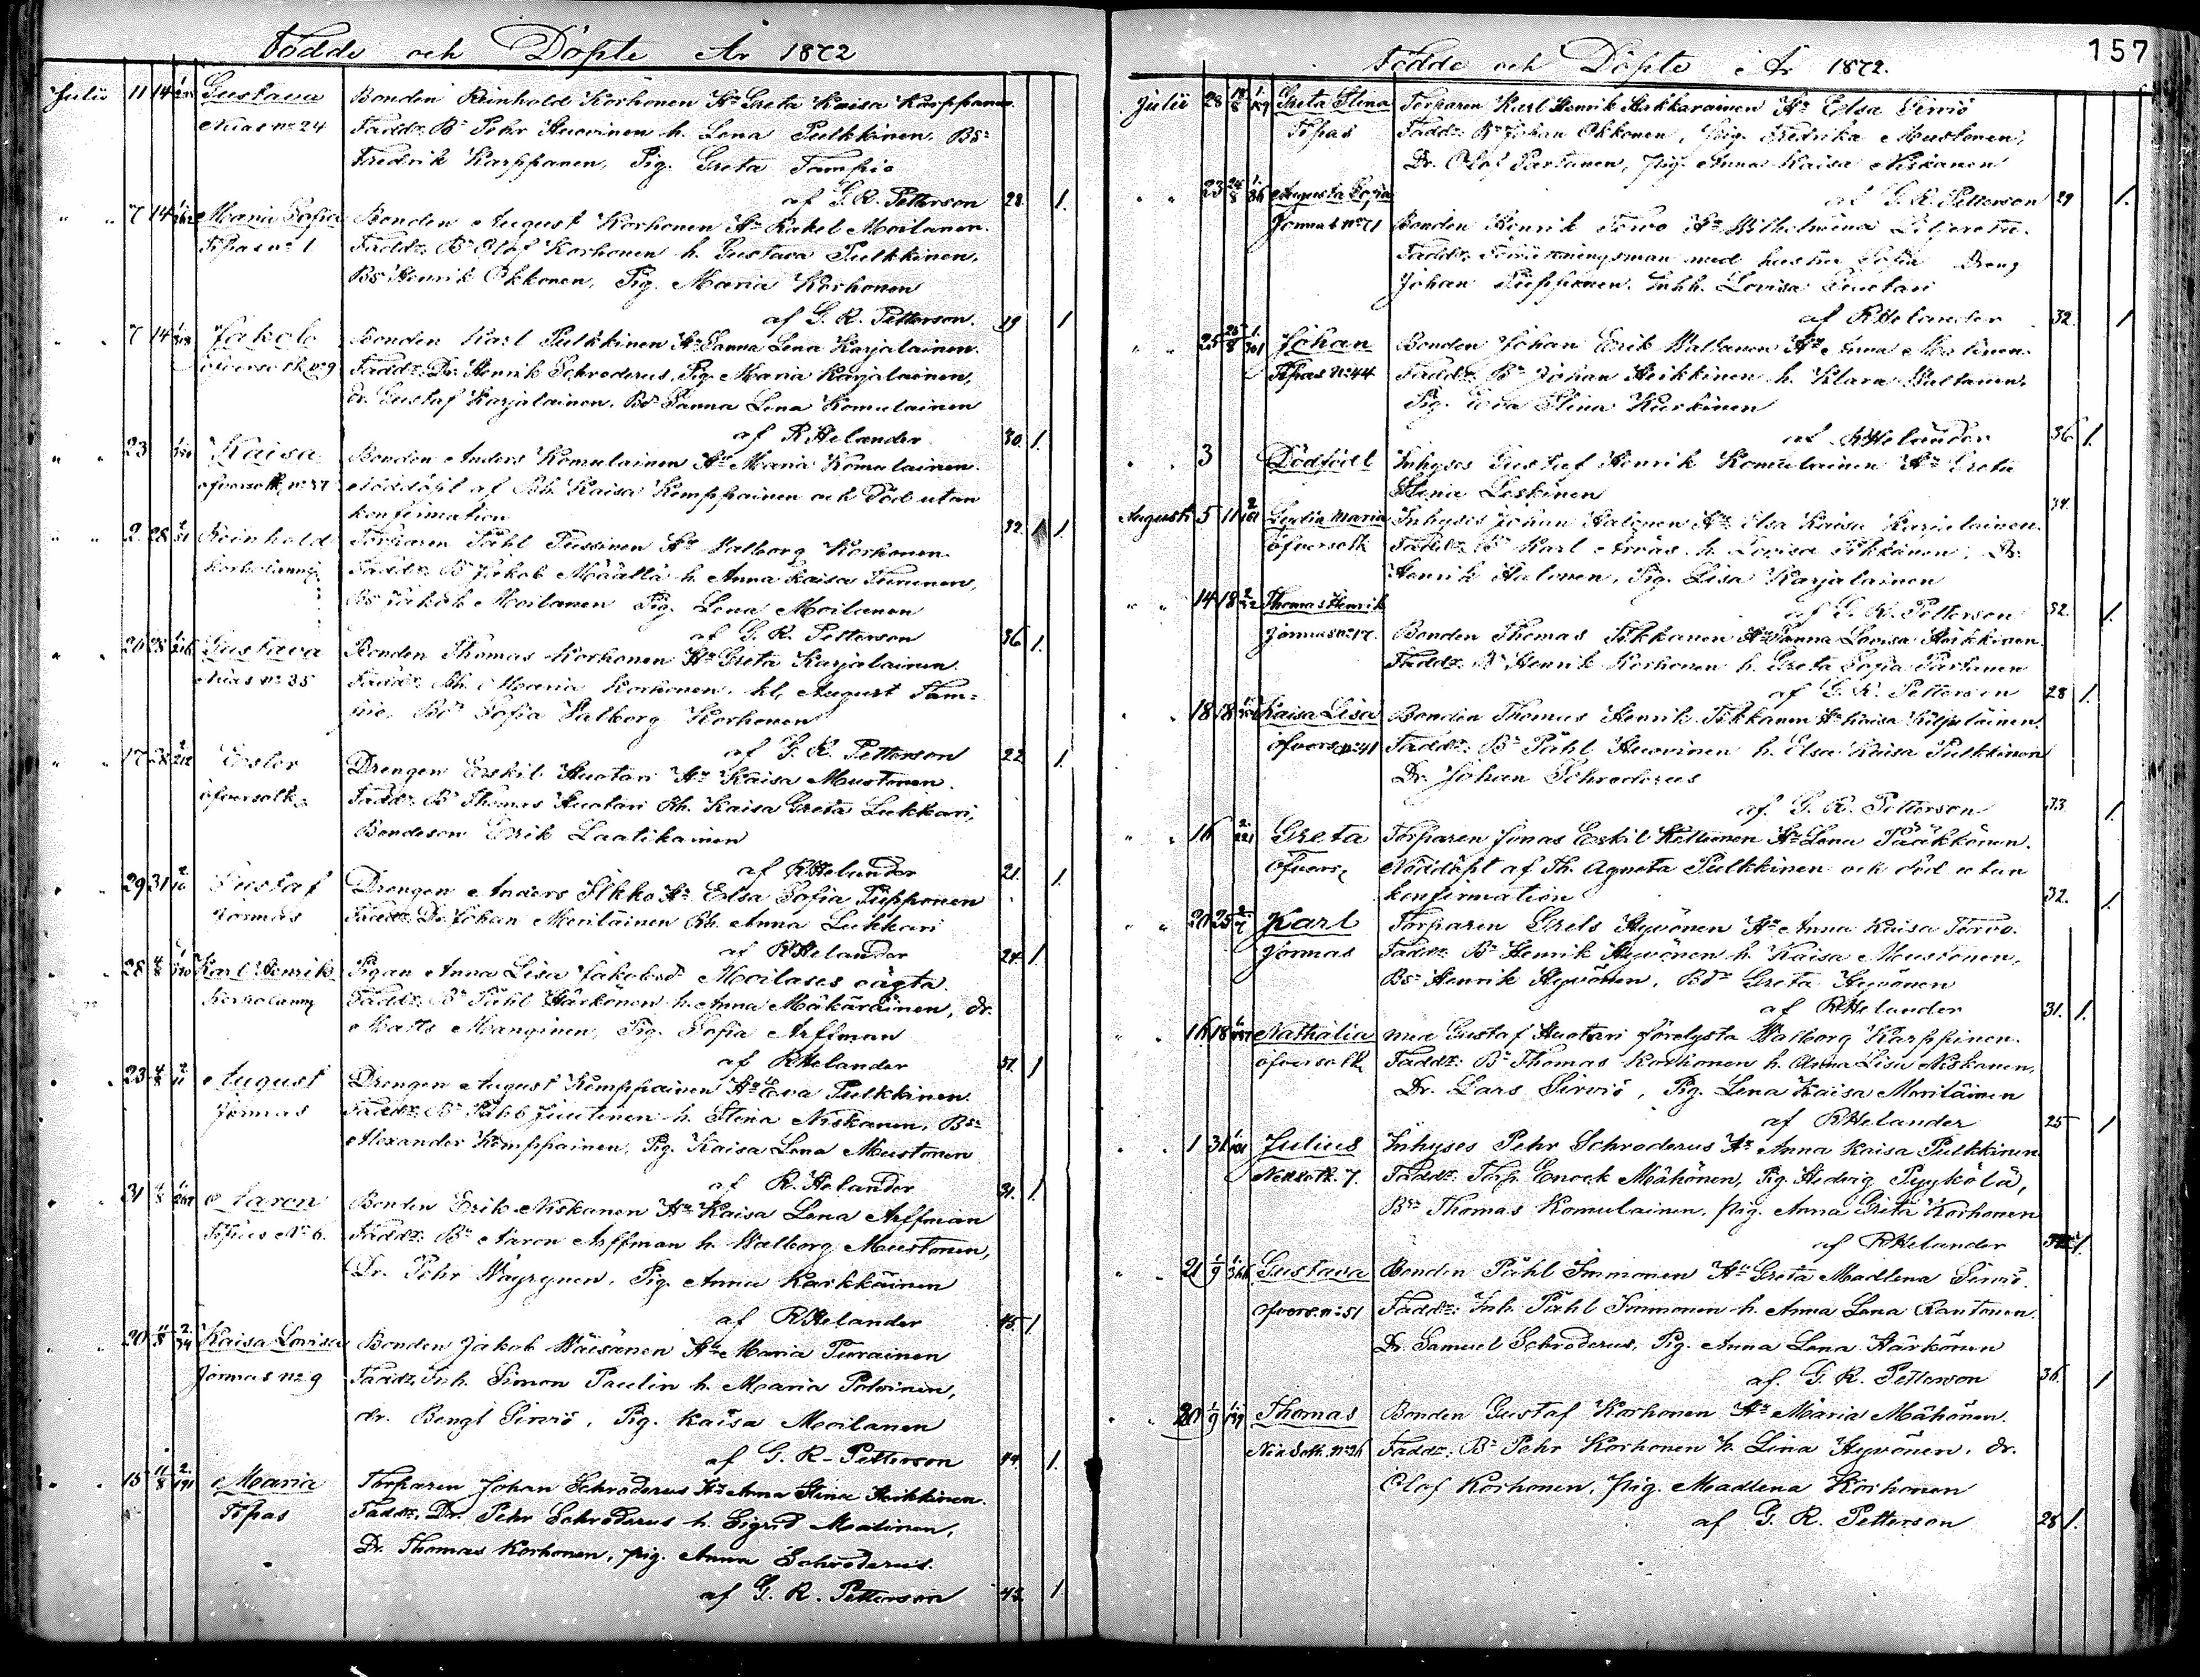 Födde och Döpte År 1872
Julii 11 14 Gustava Bonden Reinhold Korhonen Hu Greta Kaisa Karppanen
No 24 Fadd. B. Pehr Huovinen h. Lena Pulkkinen, Bs.
Fredrik Karppanen, Pig. Greta Tampio
af G. R. Petterson 28. 1.
" " 7 14 Maria Sofia Bonden August Korhonen Hu Rakel Moilanen.
Tipas no 1 Fadd. B. Olof Korhonen h. Gustava Pulkkinen,
Bs Henrik Okkonen, Pig. Maria Korhonen
af G. R. Petterson. 29 1
" " 7 14 Jakob Bonden Karl Pulkkinen Hu Sanna Lena Karjalainen.
no 9 Fadd. Dr. Henrik Schroderus, Pig. Maria Karjalainen,
Dr. Gustaf Karjalainen. Bd Sanna Lena Komulainen
af R Helander 30. 1.
" " 23 Kaisa Bonden Anders Komulainen Hu Maria Komulainen.
öfversotk. no 37 Nöddöpt af Bh. Kaisa Kemppainen och död utan
konfirmation 32. 1.
" " 2 28 Reinhold Torparen Påhl Hu Valborg Korhonen.
Fadd. B. Jakob Määttä h. Anna Kaisa Turunen,
Bs Jakob Moilanen Pig. Lena Moilanen
af G. R. Petterson 36 1.
" " 20 28 Gustava Bonden Thomas Korhonen Hu Greta Karjalainen.
no 35 Fadd. Bh. Maria Korhonen. August Tam=
pio, Bd Sofia Valborg Korhonen
af G. R. Petterson 22 1.
" " 17 28 Ester Drengen Eskil Huotari Hu Kaisa Mustonen.
öfversotk. Fadd. B. Thomas Huotari Bh. Kaisa Greta Lukkari,
Bondeson Erik Laatikainen
af R Helander 21. 1.
" " 29 31 Gustaf Drengen Anders Ilkko Hu Elsa Sofia Piipponen
Jormas Fadd. Dr. Johan Meriläinen Bh. Anna Lukkari
af R Helander 24. 1.
" " 28 4/8 Karl Henrik Pigan Anna Lisa Jakobsd Moilases oägta.
Fadd. B. Påhl Härkönen h. Anna Mäkäräinen, dr.
Matts Manginen, Pig. Sofia Arffman
af R Helander 37. 1
" " 23 4/8 August Drengen August Kemppainen Hu Eva Pulkkinen.
Jormas Fadd. B. Påhl Juntunen h. Stina Niskanen, Bs.
Alexander Kemppainen, Pig. Kaisa Lena Mustonen
af R. Helander 31. 1.
" " 31 4/8 Aaron Bonden Erik Niskanen Hu Kaisa Lena Arffman
Tipas No 6. Fadd. B. Aaron Arffman h. Walborg Mustonen,
Dr. Pehr Wäyrynen, Pig. Anna Karkkäinen
af R Helander 45. 1
" " 20 11/8 Kaisa Lovisa Bonden Jakob Wäisänen Hu Maria Piirainen
Jormas no 9 Fadd. Inh. Simon Paulin h. Maria Polvinen,
dr. Bengt Sirviö, Pig. Kaisa Moilanen
af G. R. Petterson 44. 1.
" " 15 11/8 Maria Torparen Johan Schroderus Hu Anna Stina Heikkinen.
Tipas Fadd. Dr. Pehr Schroderus h. Sigrid Moilanen,
Dr. Thomas Korhonen, pig. Anna Schroderus.
af G. R. Petterson 43. 1
157
Födde och Döpte i År 1872.
Julii 28 18/8 Greta Stina Torparen Karl Henrik Hu Elsa Sirviö
Tipas Fadd. B. Johan Okkonen, pig. Fredrika Mustonen,
Dr. Olof Partanen, pig. Anna Kaisa Niskanen
af G. R. Petterson 29 1.
" " 23 24/8 Augusta Sofia
Jormas no 71 Bonden Henrik Torvo Hu Wilhelmina
Fadd. med hustru Sofia Dreng
Johan Piipponen. Inhh. Lovisa Huotari
af R Helander 32. 1
" " 25 25/8 Johan Bonden Johan Erik Hu Anna
Tipas No 44 Fadd. B. Johan Heikkinen h. Klara
Pig. Eva Stina
af R Helander 36 1.
" " 3 Dödfödt Inhyses Gustaf Henrik Komulainen Hu Greta
Stina Leskinen 34.
Augusti 5 11 Lydia Maria Inhyses Johan Halonen Hu Elsa Kaisa Karjalainen.
öfversotk Fadd. B. Karl h. Lovisa Tikkanen, Dr.
Henrik Halonen, Pig. Lisa Karjalainen
af G. R. Petterson 32. 1.
" " 14 18 Thomas Henrik
Jormas no 17. Bonden Thomas Tikkanen Hu Sanna Lovisa Heikkinen.
Fadd. B. Henrik Korhonen h. Greta Sofia Partanen
af G. R. Petterson 28 1.
" " 18 18 Kaisa Lisa Bonden Thomas Henrik Tikkanen Hu Kaisa Kilpeläinen.
öfvers no 41 Fadd. B. Påhl Huovinen h. Elsa Kaisa Pulkkinen
Dr. Johan Schroderus
af. G. R. Petterson 33. 1.
" " 16 Greta Torparen Jonas Eskil Kettunen Hu Lena Pääkkönen.
öfvers. Nöddöpt af Th. Agneta Pulkkinen och död utan
konfirmation 32. 1.
" " 20 25 Karl Torparen Grels Hyvönen Hu Anna Kaisa Torvo.
Jormas Fadd. B. Henrik Hyvönen h. Kaisa Mustonen,
Bs Henrik Hyvönen, Bd Greta Hyvönen
af R Helander 31. 1.
" " 16 18 Nathalia Gustaf Huotari förelysta Walborg Karppinen.
öfversotk Fadd. B. Thomas Korhonen h. Anna Lisa Niskanen,
Dr. Lars Sirviö, Pig. Lena Kaisa Moriläinen
af R Helander 25 1
" " 1 31 Julius Inhyses Pehr Schroderus Hu Anna Kaisa Pulkkinen
7. Fadd. Torp. Enock Mähönen, Pig. Hedvig Pyykölä,
Bs Thomas Komulainen, pig. Anna Greta Korhonen
af R Helander 1.
" " 21 1/9 Gustava Bonden Påhl Immonen Hu Greta Madlena Sirviö.
öfvers. no 51 Fadd. Inh. Påhl Immonen h. Anna Lena Rautonen.
Dr. Samuel Schroderus, Pig. Anna Lena Härkönen
af. G. R. Petterson 36. 1
" " 20 1/9 Thomas Bonden Gustaf Korhonen Hu Maria Mähönen.
Fadd. B. Pehr Korhonen h. Lina Hyvönen, dr.
Olof Korhonen, pig. Madlena Korhonen
af G. R. Petterson 28 1.